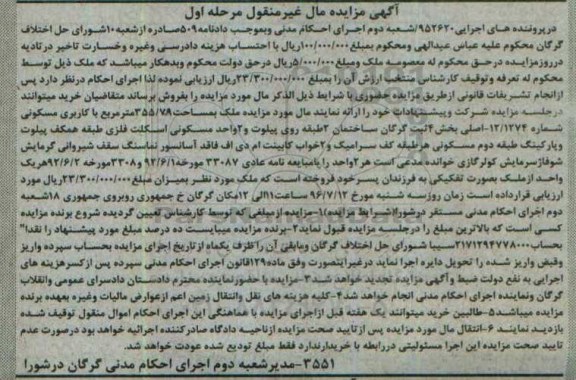 آگهی مزایده مال غیرمنقول مرحله اول
درپرونده های اجرایی ۹۵۲۶۲۰/شعبه دوم اجرای احکام مدنی وبموجب دادنامه ۵۰۹ صادره ازشعبه ۱۰شورای حل اختلاف
گرگان محکوم علیه عباس عبدالهی ومحکوم بمبلغ ۱۰۰/۰۰۰/۰۰۰ریال با احتساب هزینه دادرسی وغیره وخسارت تاخیر درتادیه
درروزمزایده درحق محکوم له معصومه ملک ومبلغ ۵/۰۰۰/۰۰۰ریال درحق دولت محکوم وبدهکار میباشد که ملک ذیل توسط
محکوم له تعرفه وتوقیف کارشناس منتخب ارزش آن را بمبلغ ۲۳/۳۰۰/۰۰۰/۰۰۰ریال ارزیابی نموده لذا اجرای احکام درنظر دارد پس
ازانجام تشریفات قانونی ازطریق مزایده حضوری با شرایط ذیل الذکر مال مورد مزایده را بفروش برساند متقاضیان خرید میتوانند
درجلسه مزایده شرکت وپیشنهادات خود را ارائه نمایند مال مورد مزایده ملک بمساحت ۳۵۵/۷۹مترمربع با کاربری مسکونی
شماره ۱۲/۱۲۷۴-اصلی بخش ۴ثبت گرگان ساختمان ۲طبقه روی پیلوت و۲واحد مسکونی اسکلت فلزی طبقه همکف پیلوت
وپارکینگ طبقه دوم مسکونی هرطبقه کف سرامیک و۲خواب کابینت ام دی اف فاقد آسانسور نماسنگ سقف شیروانی گرمایش
شوفاژسرمایش کولرگازی خوانده مدعی است هر۲واحد را بامبایعه نامه عادی ۳۳۰۸۷ مورخه ۹۲/۶/۱ و۳۳۰۸مورخه ۹۲/۶/۲هریک
واحد ازملک بصورت تفکیکی به فرزندان پسرخود فروخته است که ملک مورد نظر بمیزان مبلغ ۲۳/۳۰۰/۰۰۰/۰۰۰ریال مورد
ارزیابی قرارداده است زمان روزسه شنبه مورخ ۹۶/۷/۱۲ ساعت ۱۱الی ۱۲مکان گرگان خ جمهوری روبروی جمهوری ۱۸شعبه
دوم اجرای احکام مدنی مستقر درشورا شرایط مزایده ۱-مزایده ازمبلغی که توسط کارشناس تعیین گردیده شروع برنده مزایده
کسی است که بالاترین مبلغ را درجلسه مزایده قبول نماید ۲-برنده مزایده میبایست ده درصد مبلغ مورد پیشنهاد را نقدا"
بحساب ۲۱۷۱۲۹۴۷۷۸۰۰۰سیبا شورای حل اختلاف گرگان ومابقی آن را ظرف یکماه ازتاریخ اجرای مزایده بحساب سپرده واریز
وقبض واریز شده را تحویل دایره اجرا نماید درغیراینصورت وفق ماده ۱۲۹قانون اجرای احکام مدنی سپرده پس ازکسرهزینه های
اجرایی به نفع دولت ضبط وآگهی مزایده تجدید خواهد شد ۳-مزایده با حضورنماینده محترم دادستان دادسرای عمومی وانقلاب
گرگان ونماینده اجرای احکام مدنی انجام خواهد شد ۴-کلیه هزینه های نقل وانتقال زمین اعم ازعوارض مالیات وغیره بعهده برنده
مزایده میباشد ۵-طالبین خرید میتوانند یک هفته قبل ازاجرای مزایده با هماهنگی این اجرای احکام اموال منقول توقیف شده
بازدید نمایند ۶-انتقال مال مورد مزایده پس ازتایید صحت مزایده ازناحیه دادگاه صادرکننده اجرائیه خواهد بود درصورت عدم
تایید صحت مزایده این اجرا مسئولیتی دررابطه با خریدارندارد فقط مبلغ تودیع شده عودت خواهد شد.
۳۵۵۱-مدیرشعبه دوم اجرای احکام مدنی گرگان درشورا